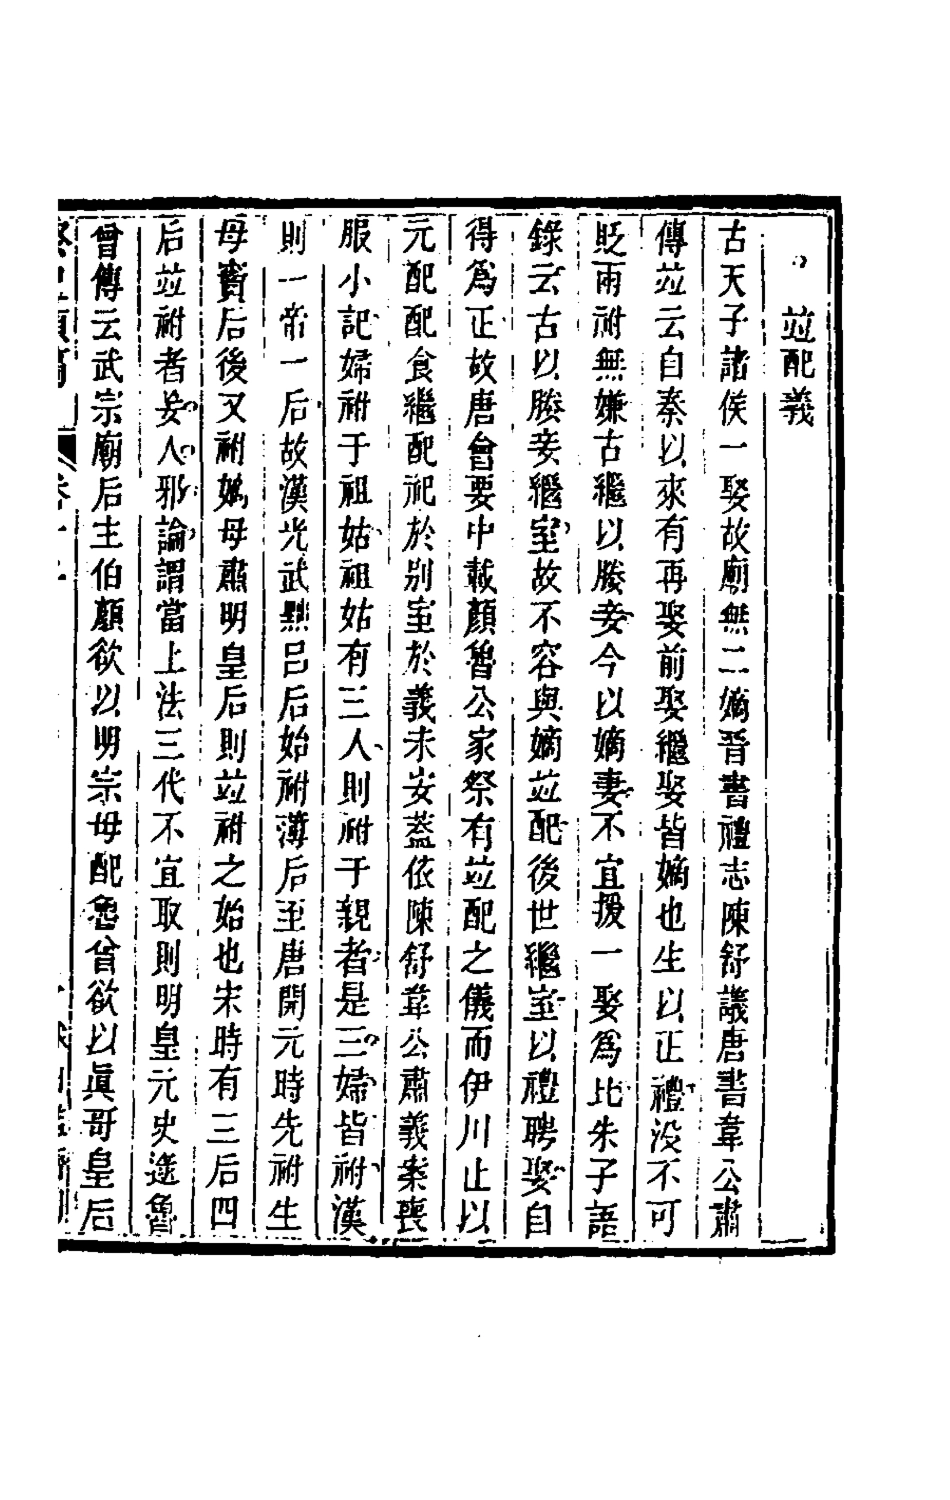 竝配義
古天子諸侯一娶故廟無二嫡晉書禮志陳舒議唐書韋公肅
傳竝云自秦以來有再娶前娶繼娶皆嫡也生以正禮没不可
貶兩祔無嫌古繼以媵妾今以嫡妻不宜援一娶爲比朱子語
錄云古以媵妾繼室故不容與嫡竝配後世繼室以禮聘娶自
得爲正故唐會要中載顏魯公家祭有竝配之儀而伊川止以
元配配食繼配祀於别室於義未安蓋依陳舒韋公肅義案喪
服小記婦祔于祖姑祖姑有三人則祔于親者是三婦皆祔漢
則一帝一后故漢光武黜吕后始祔薄后至唐開元時先祔生
母竇后後又祔嫡母肅明皇后則竝祔之始也宋時有三后四
后竝祔者妄人邪論謂當上法三代不宜取則明皇元史逯魯
曾傳云武宗廟后主伯顏欲以明宗母配魯曾欲以眞哥皇后